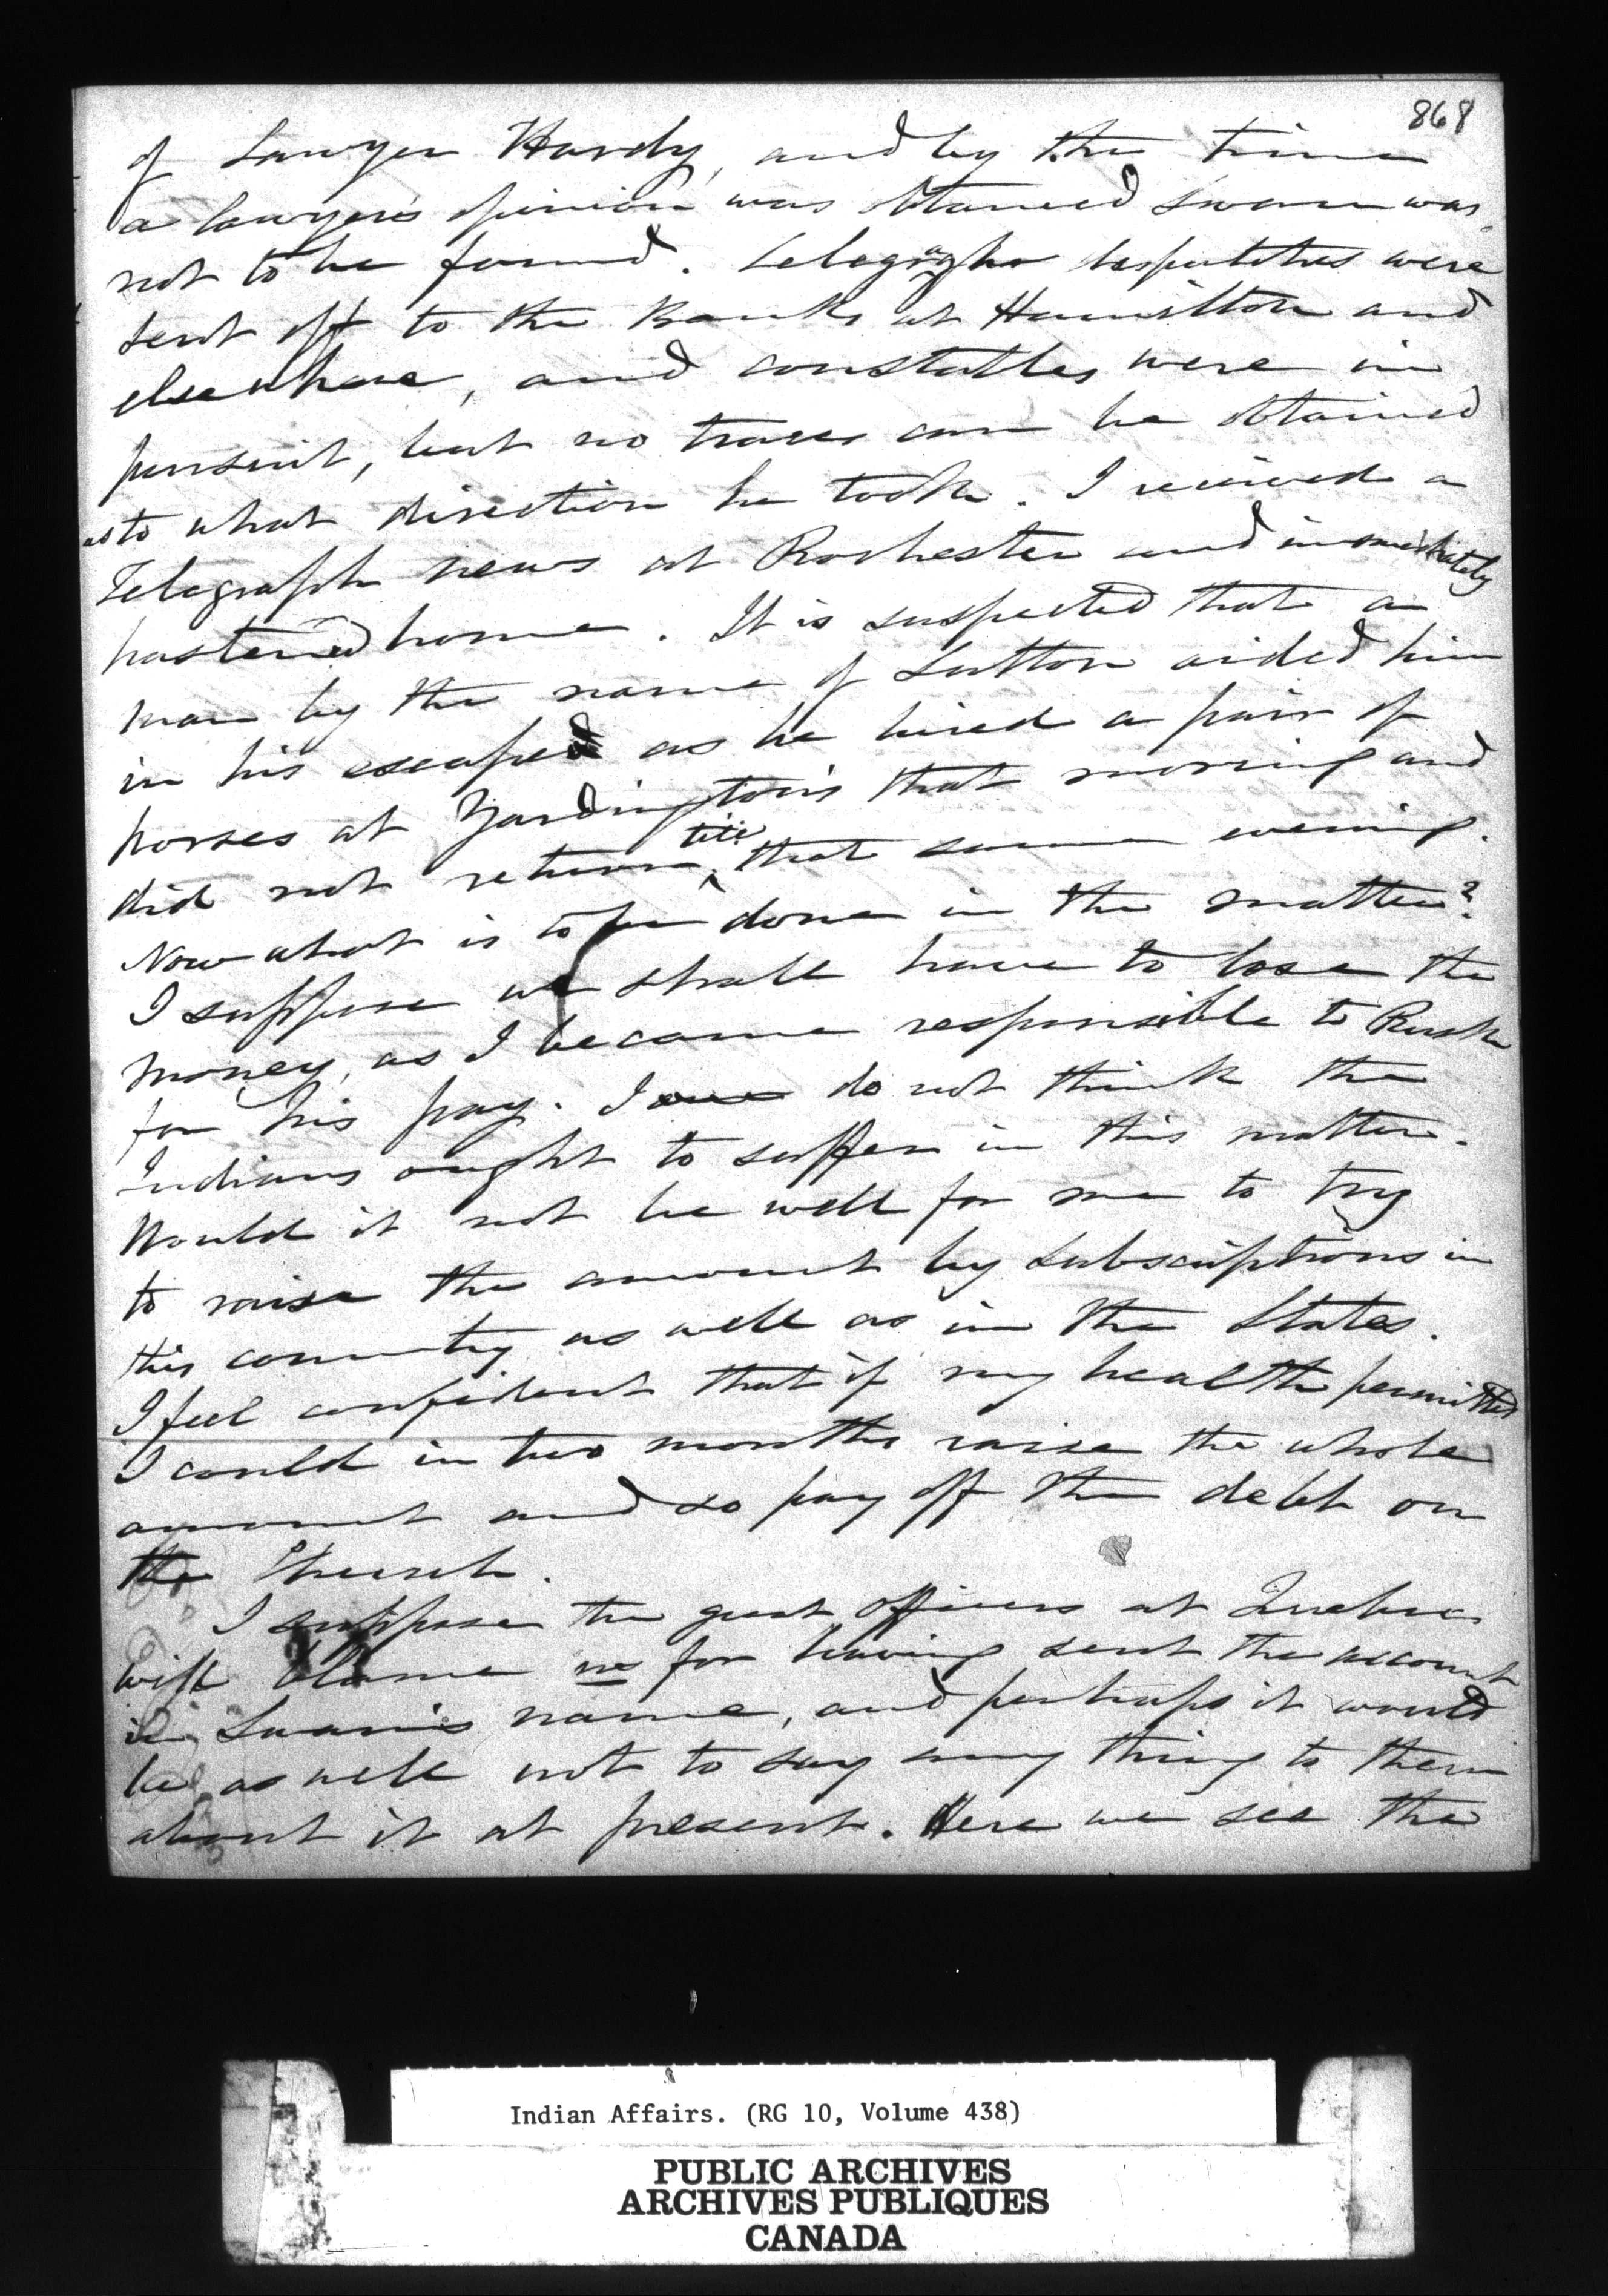 868
of Lawyer Hardy, and by the time
a lawyer's opinion was obtained Swan was
not to be found. Telegraphs despatches were
sent off to the Banks at Hamilton and
elsewhere, and constables were in
pursuit, but no traces can be obtained
as to what direction he took. I received a
Telegraph news at Rochester and immediately
hastened home. It is suspected that a
man by the name of Sutton aided him
in his escape as he hired a pair of
horses at Yardington's that morning and
did not return till that same evening.
Now what is to be done in the matter?
I suppose we shall have to lose the
money, as I became responsible to Rush
for his pay. I do not think the
Indians ought to suffer in this matter.
Would it not be well for me to try
to raise the amount by subscriptions in
this country as well as in the States.
I feel confident that if my health permitted
I could in two months raise the whole
amount and so pay off the debt on
the Church.
I suppose the great officers at Quebec
will blame us for having sent the account
in Swan's name, and perhaps it would
be as well not to say any thing to them
about it at present. Here we see the
Indian Affairs. (RG 10, Volume 438)
PUBLIC ARCHIVES
ARCHIVES PUBLIQUES
CANADA